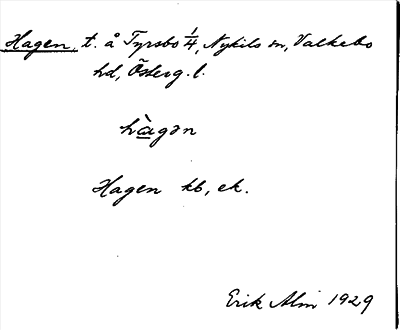 Hagen, t. å Tyrsbo 1/4, Nykils sn, Valkebo
hd, Österg. l.
hàgən
Hagen kb, ek.
Erik Alm 1929